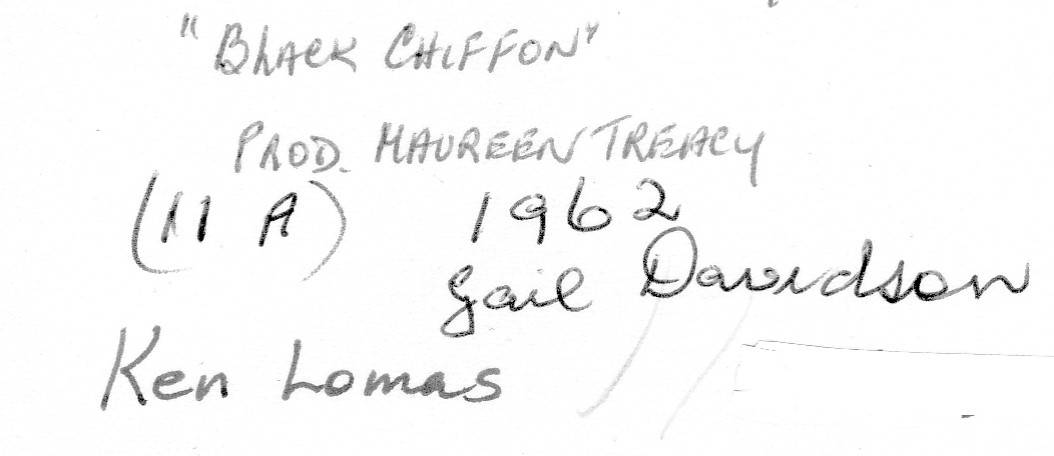 "BLACK CHIFFON"
PROD. MAUREEN TREACY
(11 A) 1962
Gail Davidson
Ken Lomas